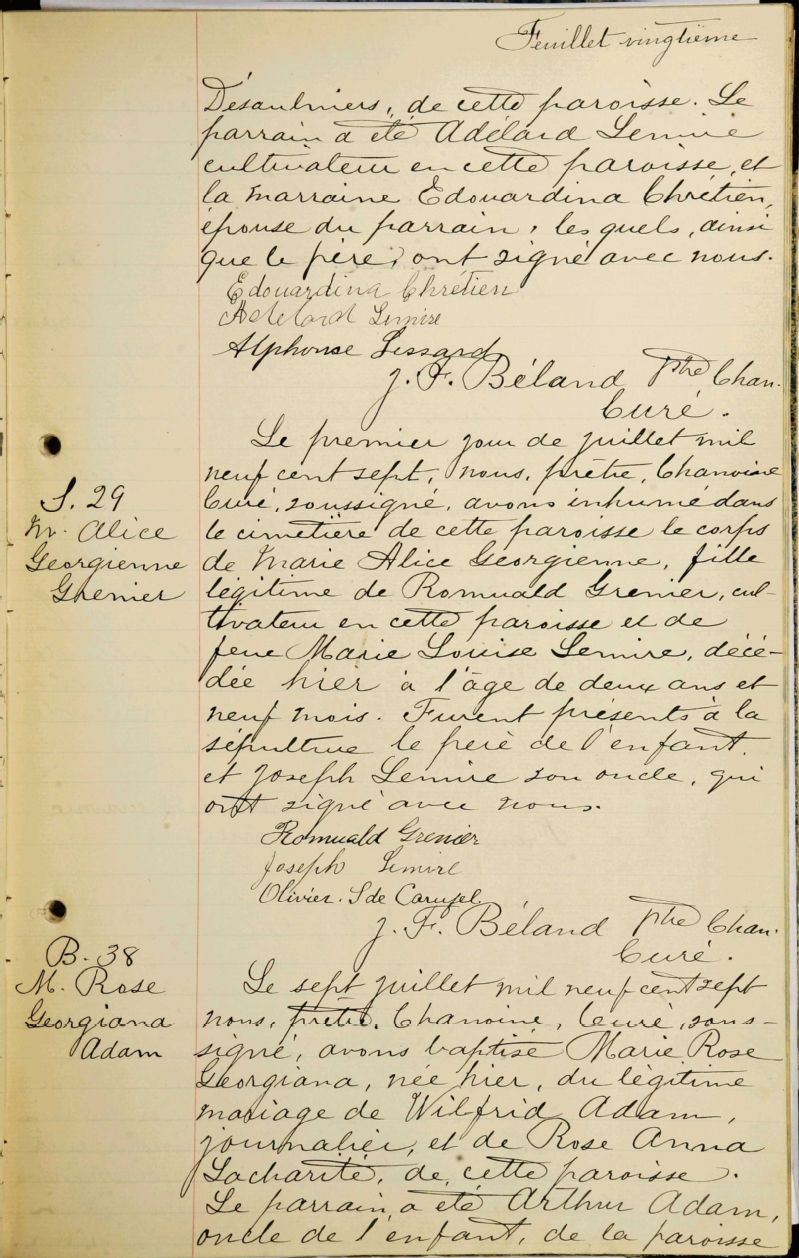 Feuillet vingtième
Désaulniers, de cette paroisse. Le
parrain a été Adélard Lemire
cultivateur en cette paroisse, et
la marraine Edouardina Chrétien,
épouse du parrain, les quels, ainsi
que le père, ont signé avec nous.
Edouardina Chrétien
Adelard Lemire
Alphonse Lessard
J. F. Béland Ptre Chan.
Curé.
S. 29
M. Alice
Georgienne
Grenier
Le premier jour de juillet mil
neuf cent sept, nous, prêtre, Chanoine
Curé, soussigné, avons inhumé dans
le cimetière de cette paroisse le corps
de Marie Alice Georgienne, fille
légitime de Romuald Grenier, cul-
tivateur en cette paroisse et de
feue Marie Louise Lemire, décé-
dée hier à l'âge de deux ans et
neuf mois. Furent présents à la
sépulture le père de l'enfant,
et Joseph Lemire son oncle, qui
ont signé avec nous.
Romuald Grenier
Joseph Lemire
Olivier. S de Carufel
J. F. Béland ptre Chan.
Curé.
B. 38
M. Rose
Georgiana
Adam
Le sept juillet mil neuf cent sept
nous, prêtre, Chanoine, Curé, sous-
signé, avons baptisé Marie Rose
Georgiana, née hier, du légitime
mariage de Wilfrid Adam,
journalier, et de Rose Anna
Lacharité, de cette paroisse.
Le parrain a été Arthur Adam,
oncle de l'enfant, de la paroisse